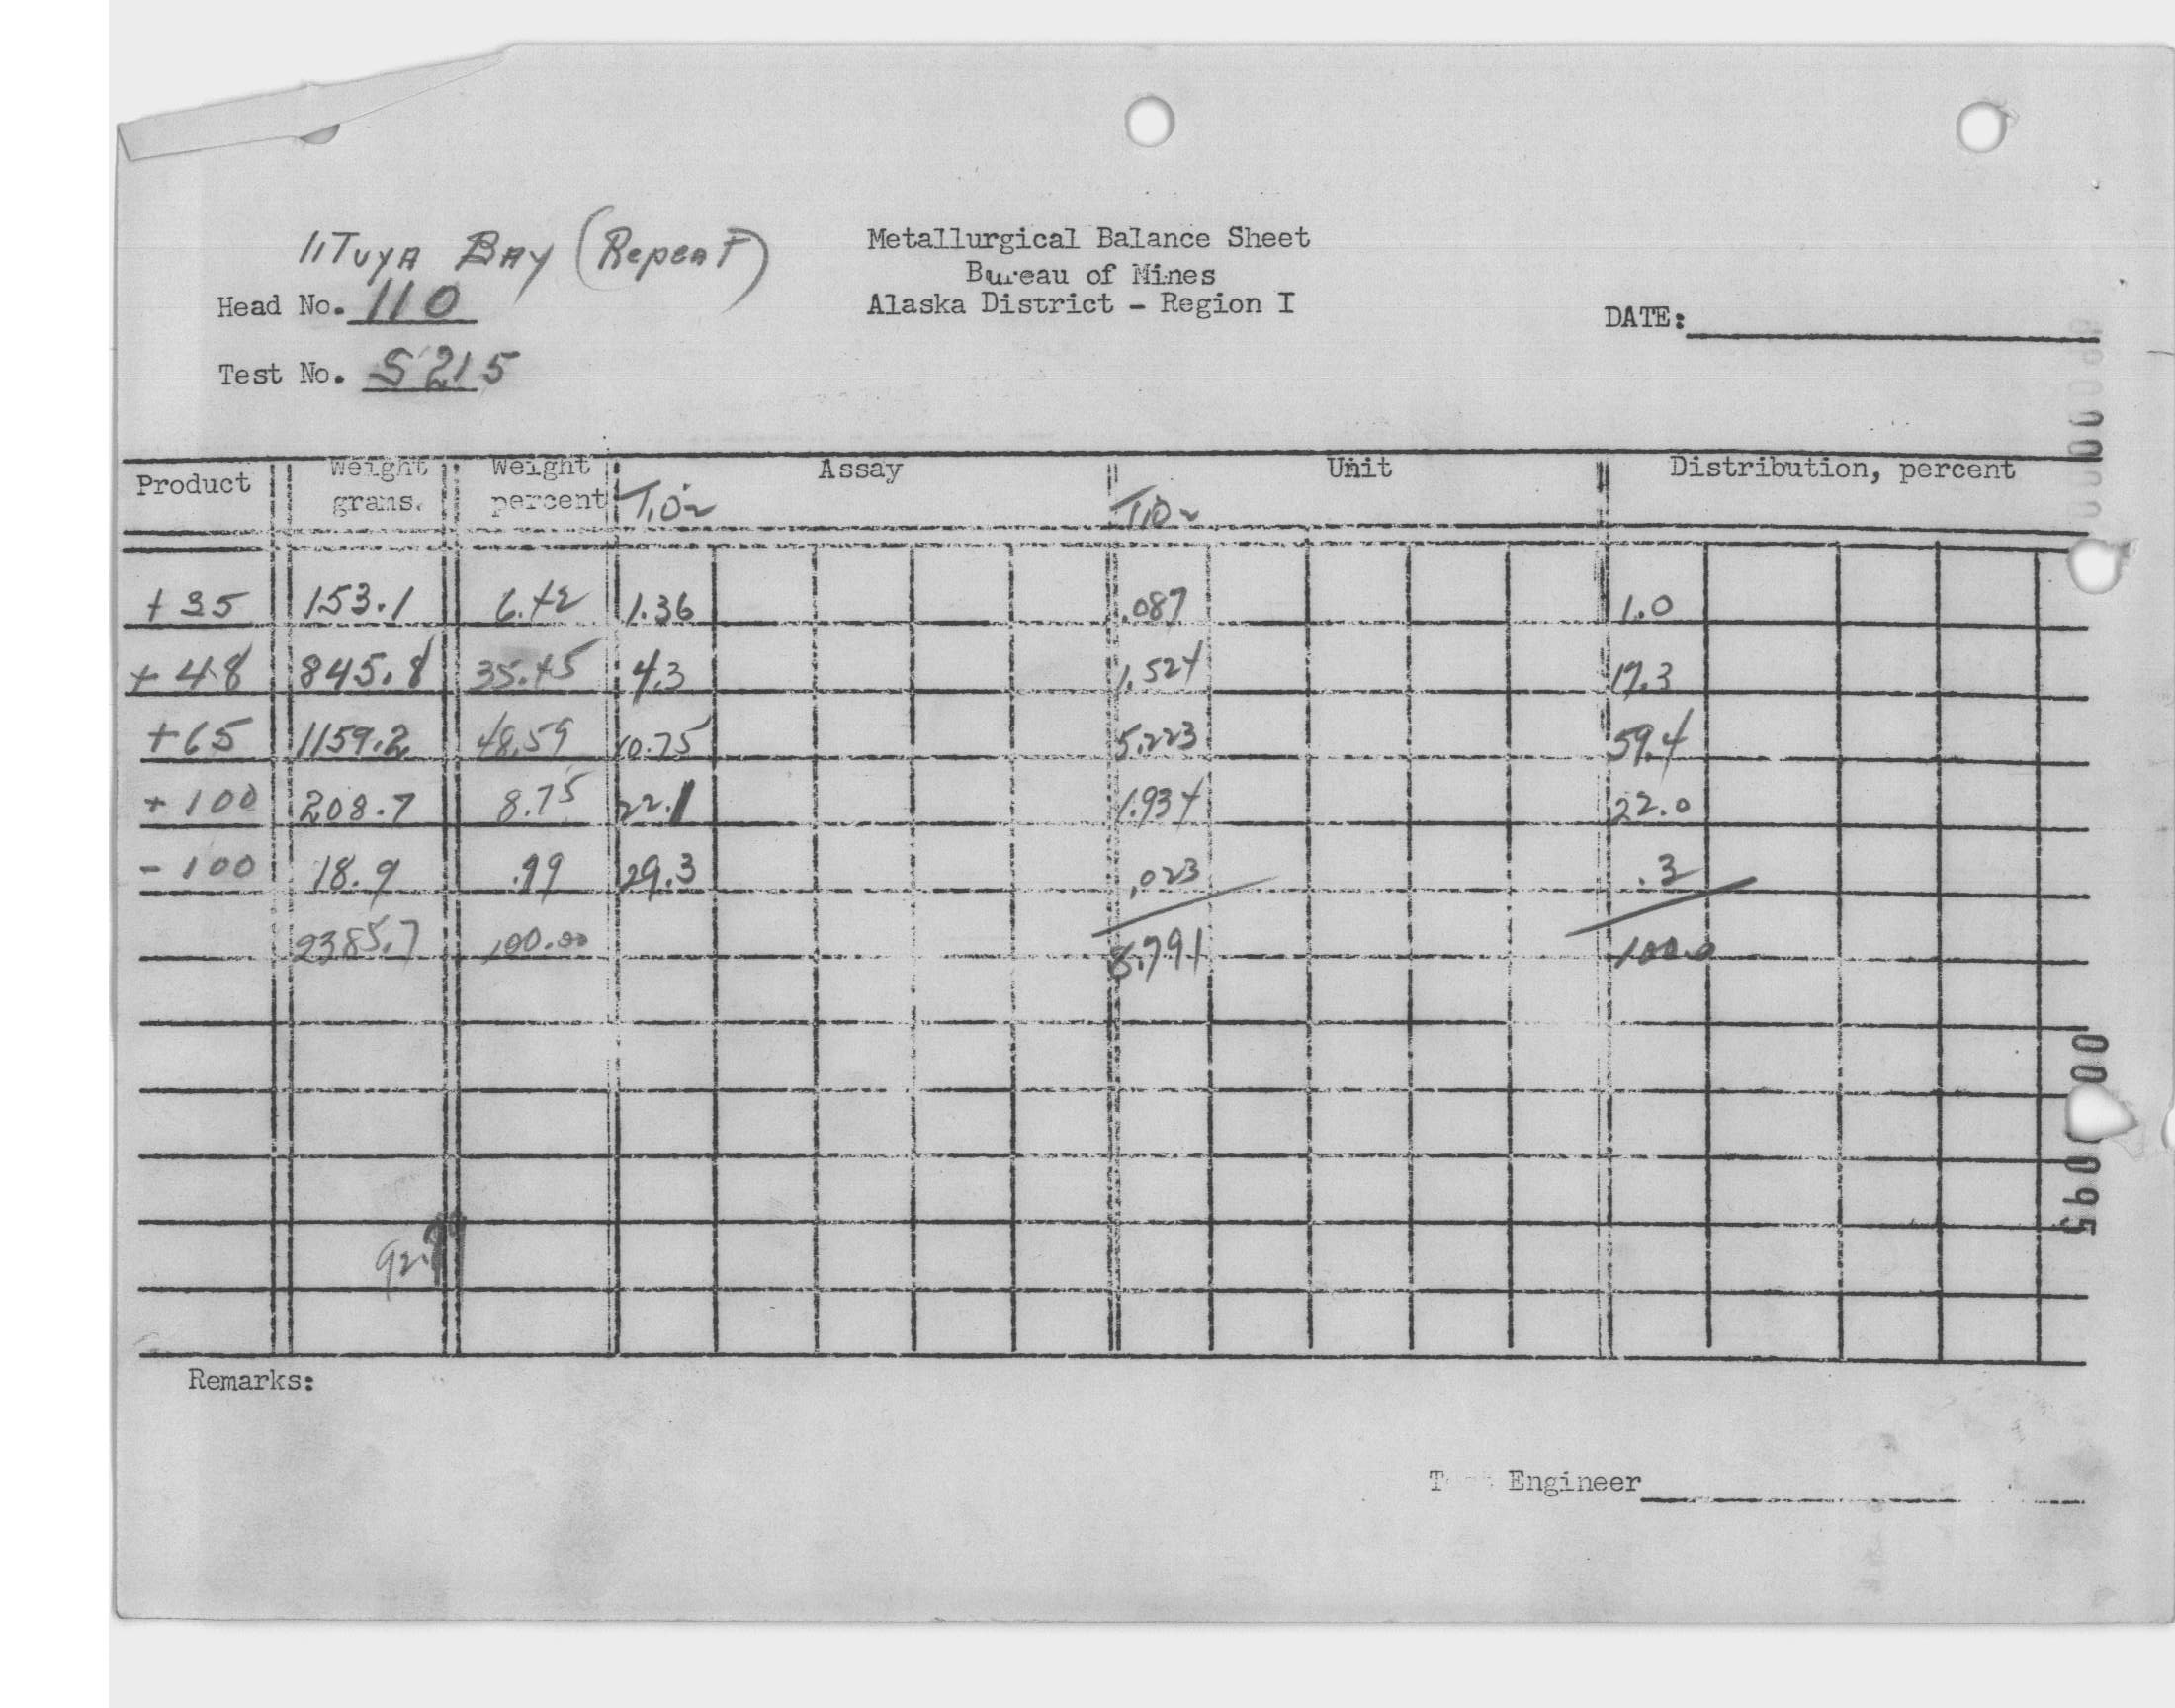 LiTuyA BAy (RepeaT)
Metallurgical Balance Sheet
Bureau of Mines
Alaska District - Region I
Head No. 110
DATE:
Test No. S215
Product Weight grams. Weight percent Assay Unit Distribution, percent
TiO2 TiO2
+35 153.1 6.42 1.36 .087 1.0
+48 845.8 35.45 4.3 1.524 17.3
+65 1159.2 48.59 10.75 5.223 59.4
+100 208.7 8.75 22.1 1.934 22.0
-100 18.9 .79 29.3 .023 .3
2385.7 100.00 8.791 100.0
Remarks:
Engineer